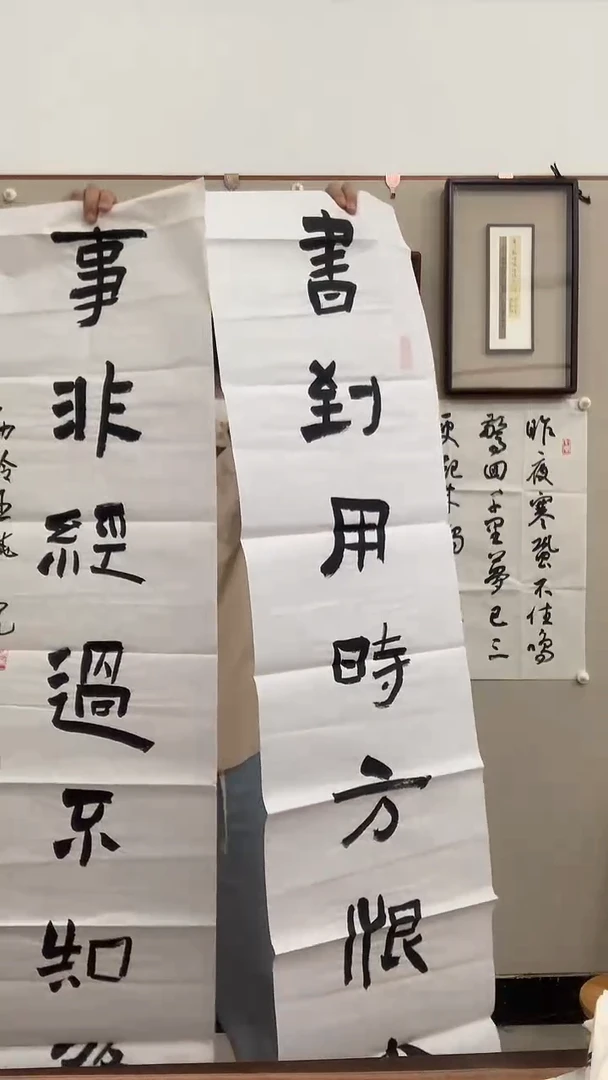 昨夜寒蛩不住鳴
驚回千里夢已三
書到用時方恨
事非經過不知